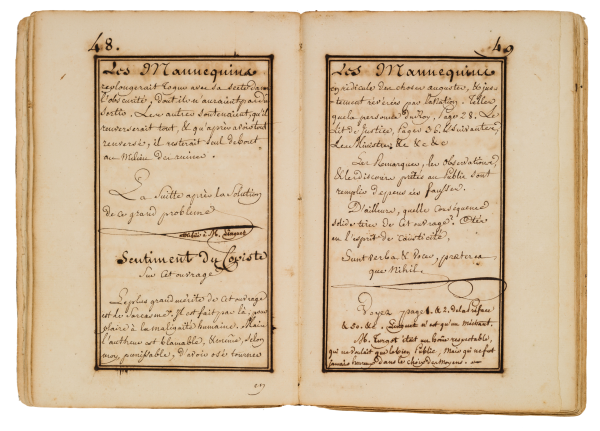 48.
Les Mannequins
replongerait Togus avec sa secte dans
l'obscurité, dont il n'auraient pas dû
sortir. Les autres soutenaient, qu'il
renverserait tout, & qu'après avoir tout
renversé, il resterait seul debout
au milieu des ruines.
La Suitte après la Solution
de ce grand problême
attribué à M. Linguet
Sentiment du Copiste
Sur cet ouvrage
Le plus grand mérite de cet ouvrage
est le Sarcasme. Il est fait par là, pour
plaire à la malignité humaine. Mais
l'autheur est blamable, & même, selon
moy, punissable, d'avoir osé tourner
49
Les Mannequins
en ridicule des choses augustes, & jus-
tement révérées par la Nation. Telles
que la personne du Roy, Page 28. Le
Lit de Justice, Pages 36. & Suivantes,
Les Ministres, &c &c &c
Les Remarques, les Observations,
& les discours prêtés au Public sont
remplis d'épensées fausses.
D'ailleurs, quelle conséquence
solide tirer de cet ouvrage?
en l'esprit de causticité,
Sunt verba & voces, præterea-
que Nihil.
Voyez page 1. & 2. de la Préface
& 50. &c. Linguet n'est qu'un méchant,
M. Turgot était un homme respectable,
qui ne voulait que le bien Public, mais qui ne fut
jamais heureux dans le choix des moyens.